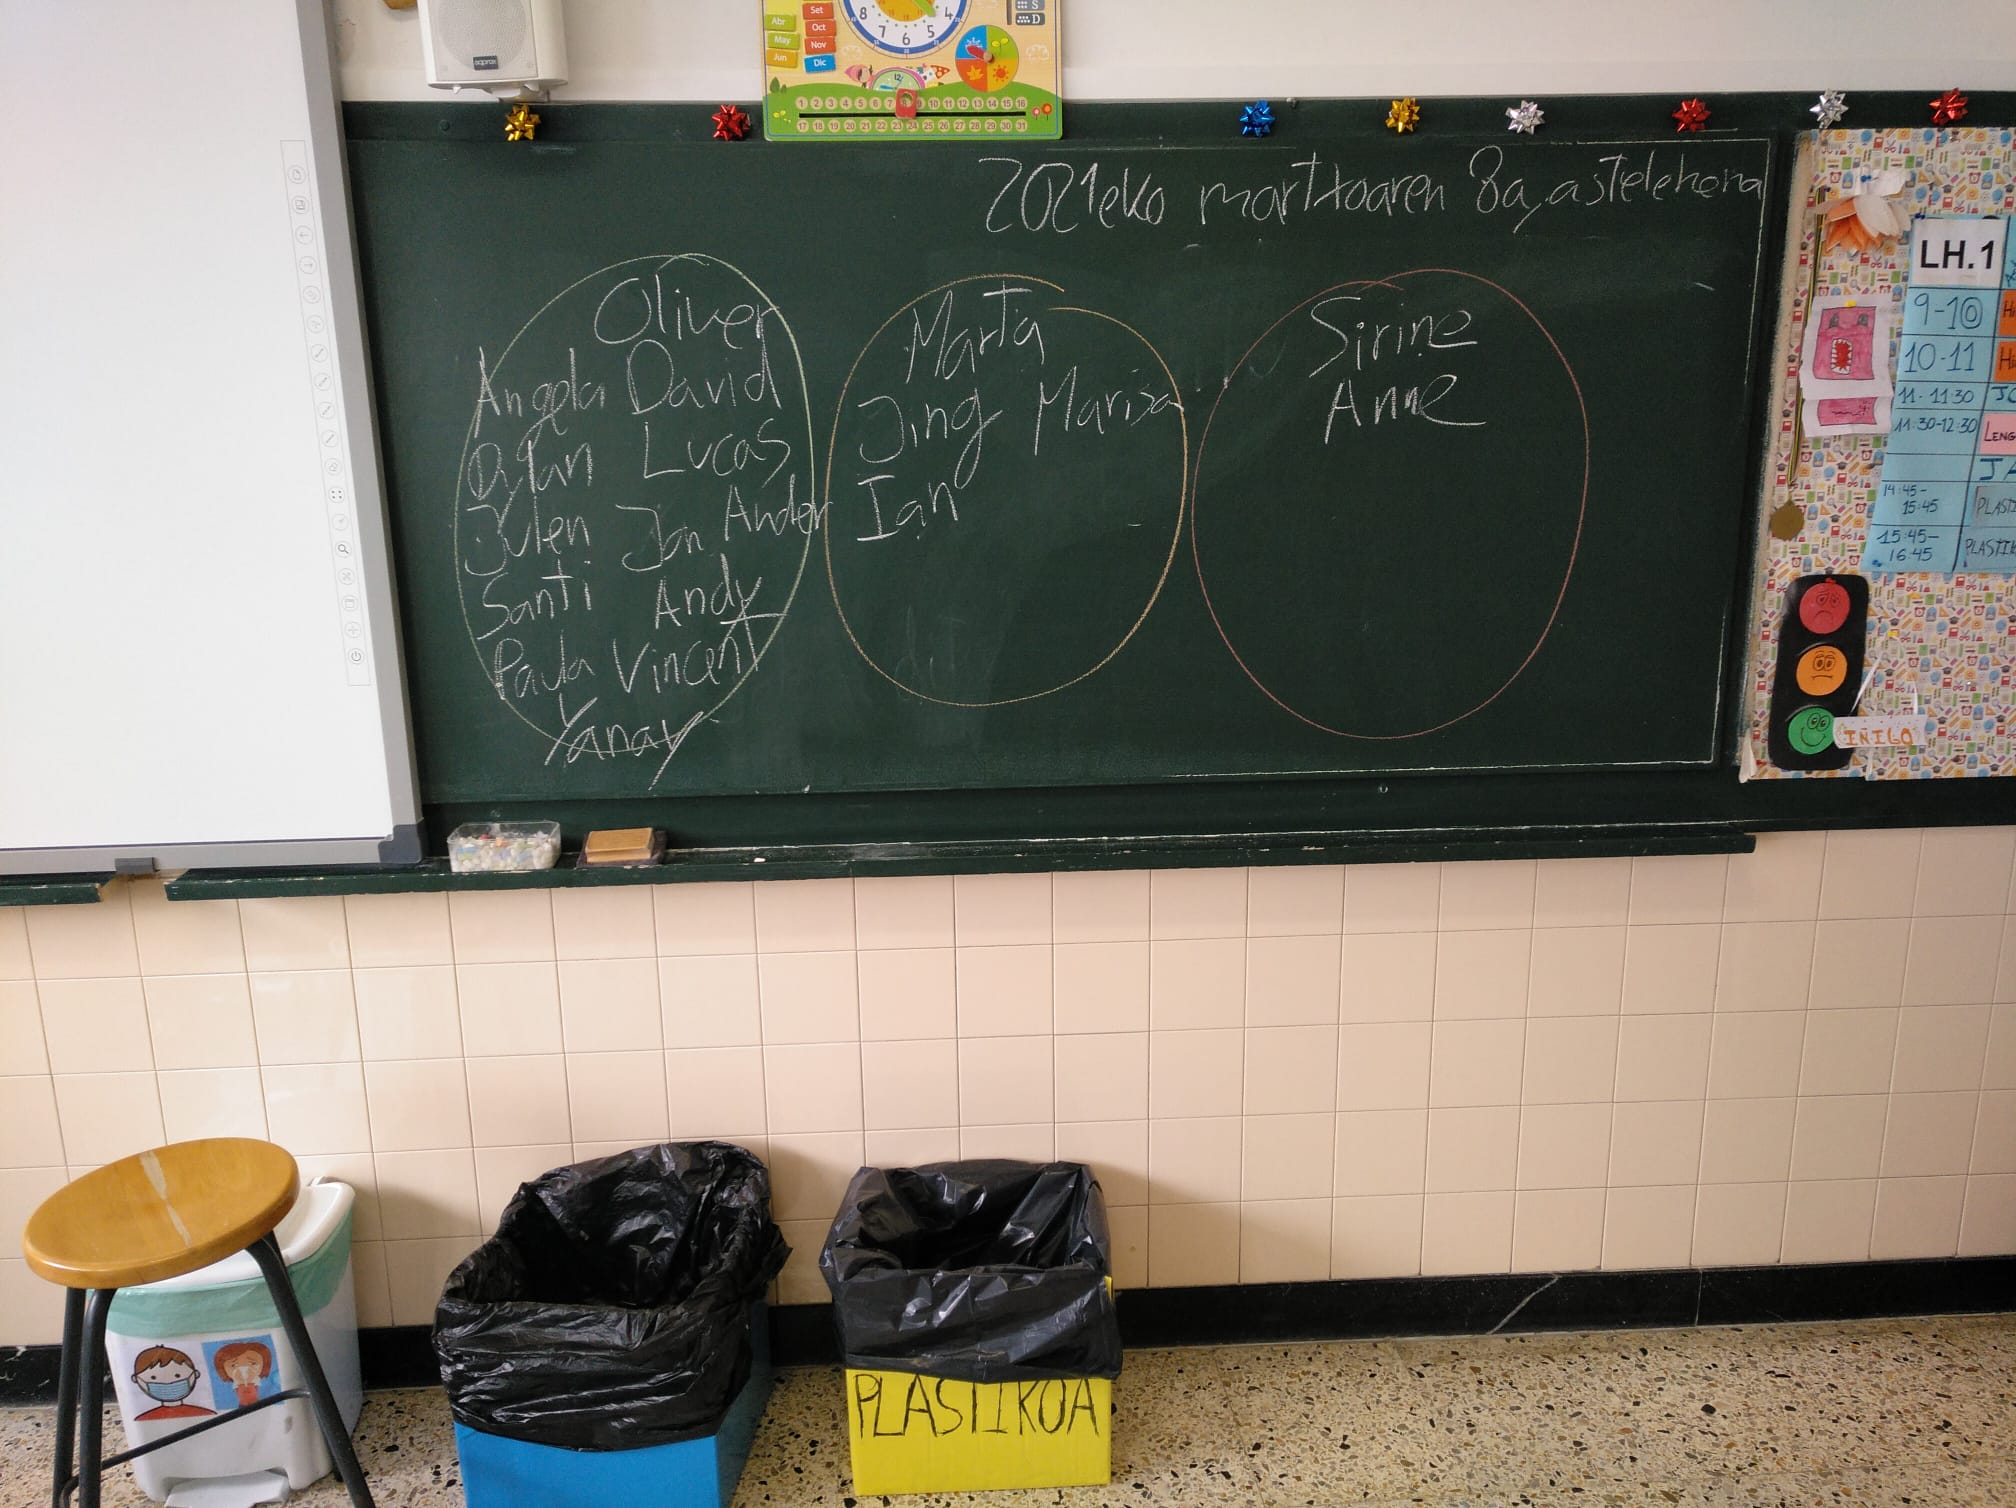 aprox
Abr
May
Jun
Set
Oct
Nov
Dic
8 7 6 5 4
S
D
12
1 2 3 4 5 6 7 9 10 11 12 13 14 15 16
17 18 19 20 21 22 23 24 25 26 27 28 29 30 31
2021eko martxoaren 8a, astelehena
Oliver
Angela David
Dylan Lucas
Julen Jon Ander
Santi Andy
Paula Vincent
Yanay
Marta
Jing Marisa
Ian
Sirine
Anne
LH.1
9-10
10-11
11-11:30
11:30-12:30
LENG
14:45-
15:45
PLASTI
15:45-
16:45
PLASTIK
IÑIGO
PLASTIKOA